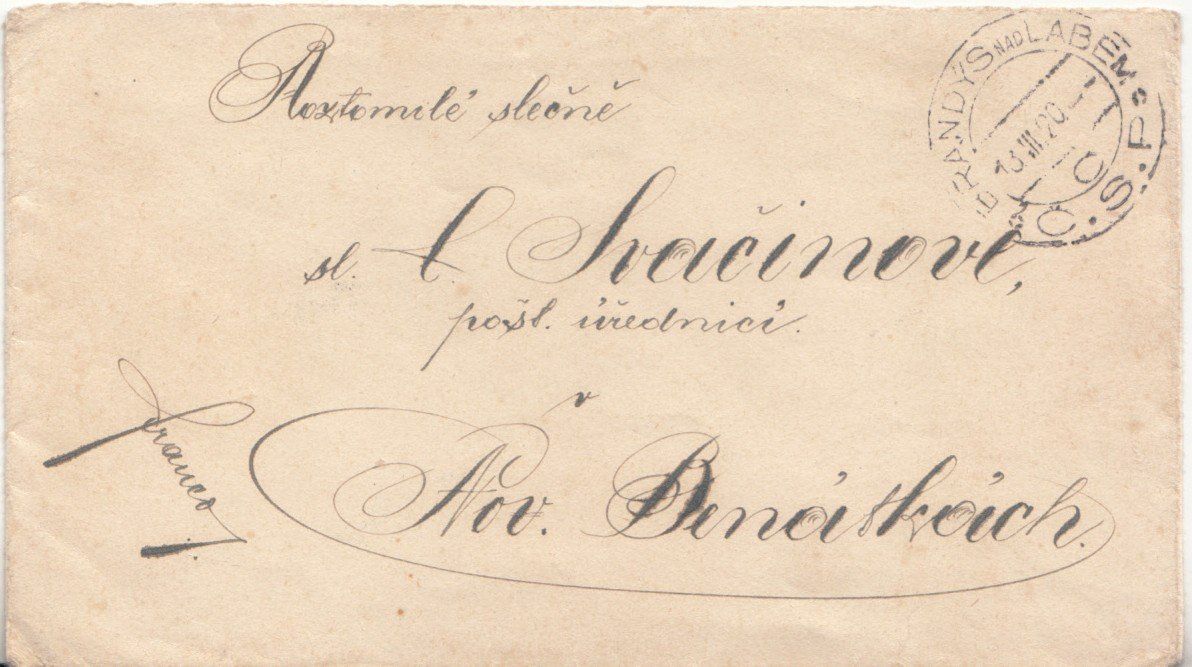 Roztomilé slečně
sl. A Svačinově,
pošt. úřednici.
v
Nov. Benátkách.
franco
BRANDÝS NAD LABEM
13.III.20.
Č.S.P.